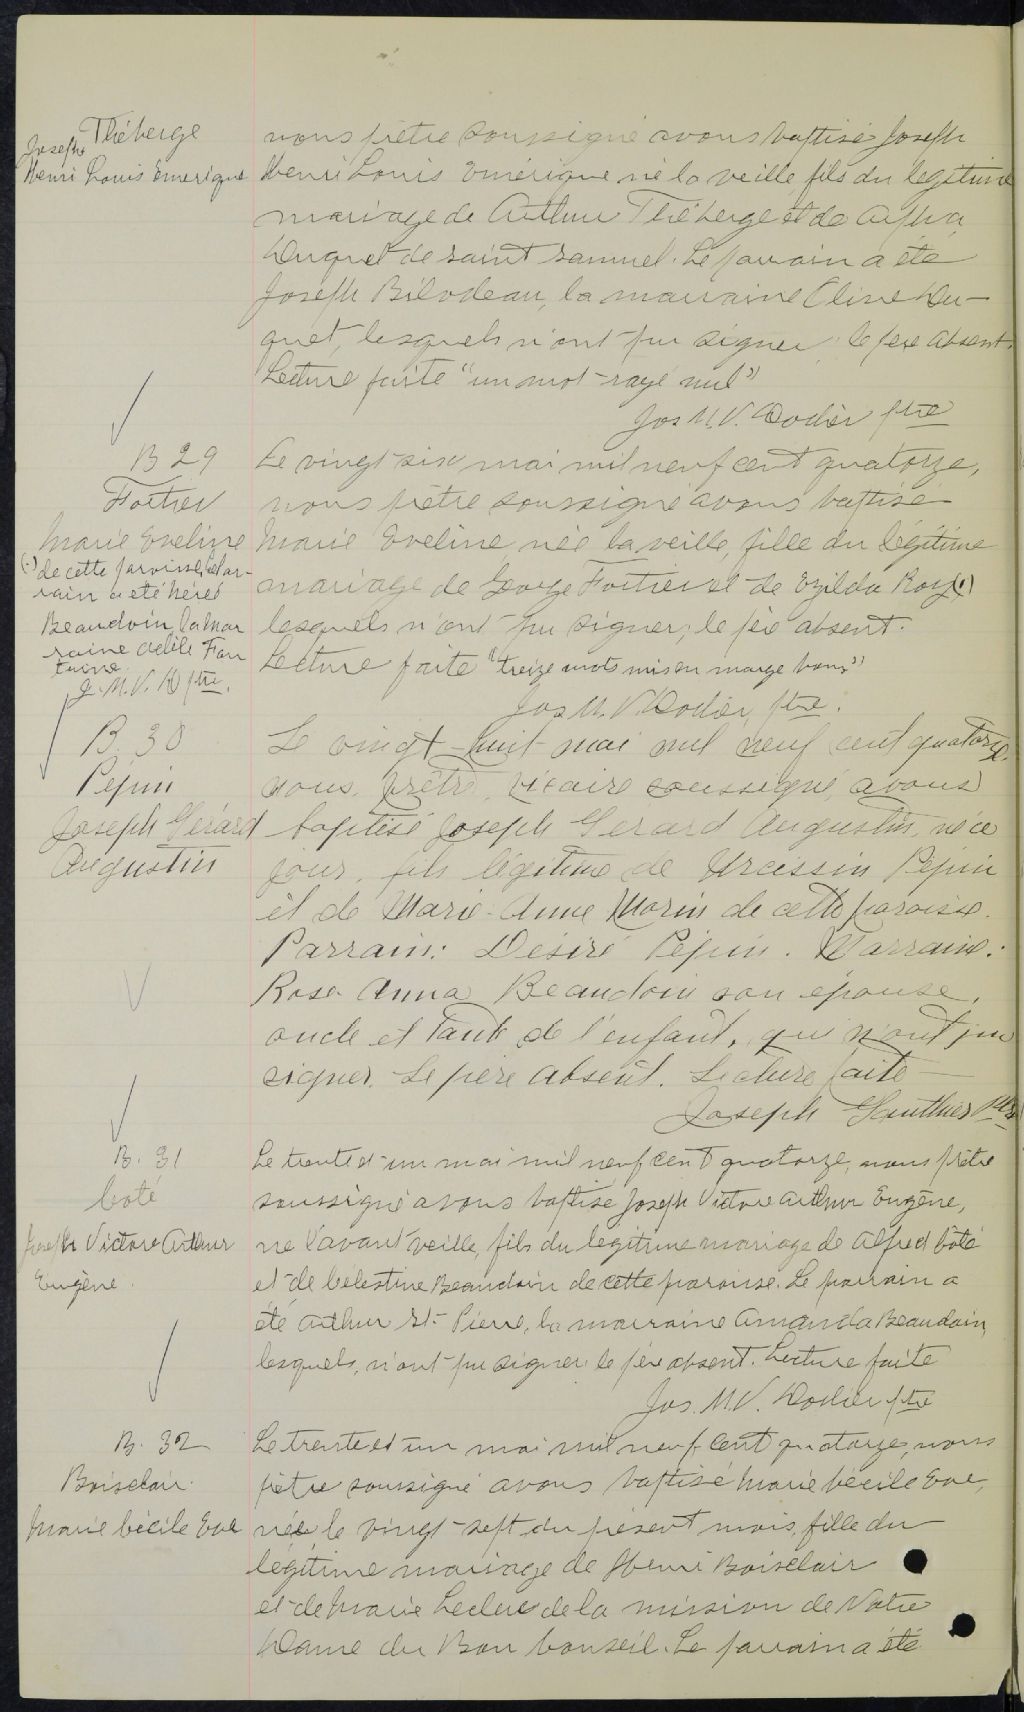 Théberge
Joseph
Henri Louis Emerique
nous prêtre soussigné avons baptisé Joseph
Henri Louis Emérique né la veille, fils du légitime
mariage de Arthur Théberge et de
Duquet de saint Samuel. Le parrain a été
Joseph Bilodeau, la marraine Cline Du-
quet, lesquels n'ont pu signer; le père absent.
Lecture faite "un mot rayé nul"
Jos M.V. Dodier ptre
B 29
Fortier
Marie Eveline
(.) de cette paroisse, le par-
rain a été Nérée
Beaudoin la mar
raine Adèle Fon
taine.
J. M. V. D ptre.
Le vingt-six mai mil neuf cent quatorze,
nous prêtre soussigné avons baptisé
Marie Eveline, née la veille, fille du légitime
mariage de George Fortier et de Ezilda Roy (.)
lesquels n'ont pu signer; le père absent.
Lecture faite "treize mots mis en marge bons"
Jos M. V. Dodier, ptre.
B. 30
Pépin
Joseph Gérard
Augustin
Le vingt-huit mai mil neuf cent quatorze
nous, prêtre, vicaire soussigné, avons
baptisé Joseph Gerard Augustin, né ce
jour, fils légitime de Pépin
et de Marie-Anne Morin de cette paroisse.
Parrain: Désiré Pépin. Marraine:
Rose Anna Beaudoin son épouse,
oncle et tante de l'enfant, qui n'ont pu
signer. Le père absent. Lecture faite —
Joseph Gauthier Ptre
B. 31
Coté
Joseph Victore Arthur
Eugène.
Le trente et un mai mil neuf cent quatorze, nous prêtre
soussigné avons baptisé Joseph Victore Arthur Eugène,
né l'avant veille, fils du légitime mariage de Alfred Côté
et de Celestine Beaudoin de cette paroisse. Le parrain a
été Arthur St-Pierre, la marraine Amanda Beaudoin,
lesquels, n'ont pu signer le père absent. Lecture faite
Jos. M.V. Dodier ptre
B. 32
Boisclair.
Marie Cécile Eve
Le trente et un mai mil neuf cent quatorze, nous
prêtre soussigné avons baptisé Marie Cécile Eve,
née, le vingt-sept du présent mois, fille du
légitime mariage de Henri Boisclair
et de Marie Leclerc de la mission de Notre
Dame du Bon Conseil. Le parrain a été